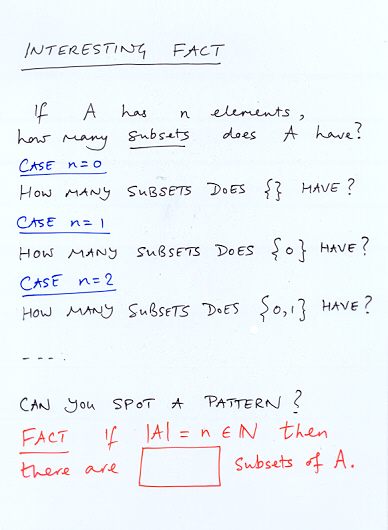 INTERESTING FACT
If A has n elements,
how many subsets does A have?
CASE n=0
HOW MANY SUBSETS DOES {} HAVE?
CASE n=1
HOW MANY SUBSETS DOES {0} HAVE?
CASE n=2
HOW MANY SUBSETS DOES {0,1} HAVE?
----.
CAN YOU SPOT A PATTERN?
FACT If |A| = n ∈ ℕ then
there are subsets of A.